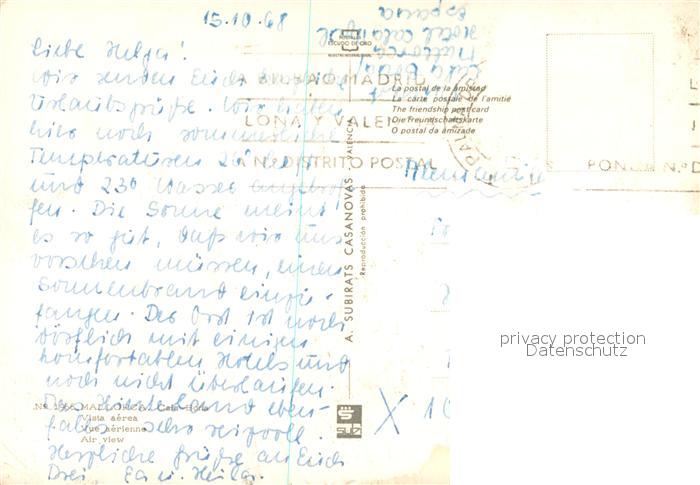 15.10.68
Liebe Helga!
Wir senden Euch
Urlaubsgrüße. Wir haben
hier noch sommerliche
Temperaturen 26°
und 23° Wasser
Die Sonne meint
es so gut, daß wir uns
vorsehen müssen, einen
Sonnenbrand einzu-
fangen. Der Ort ist noch
dörflich mit einigen
komfortablen Hotels und
noch nicht überlaufen.
Das Hinterland eben-
falls sehr reizvoll.
Herzliche Grüße an Euch
Drei,
Mallorca
España
POSTALES
ESCUDO DE ORO
A BILBAO, MADRID
LONA Y VALEN
A Nº DISTRITO POSTAL
PONGA N.º D
La postal de la amistad
La carte postale de l'amitié
The friendship postcard
Die Freundschaftskarte
O postal da amizade
A. SUBIRATS CASANOVAS
VALENCIA
Reproducción prohibida
MALLORCA
Vista aérea
Vue aérienne
Air view
X 10
privacy protection
Datenschutz